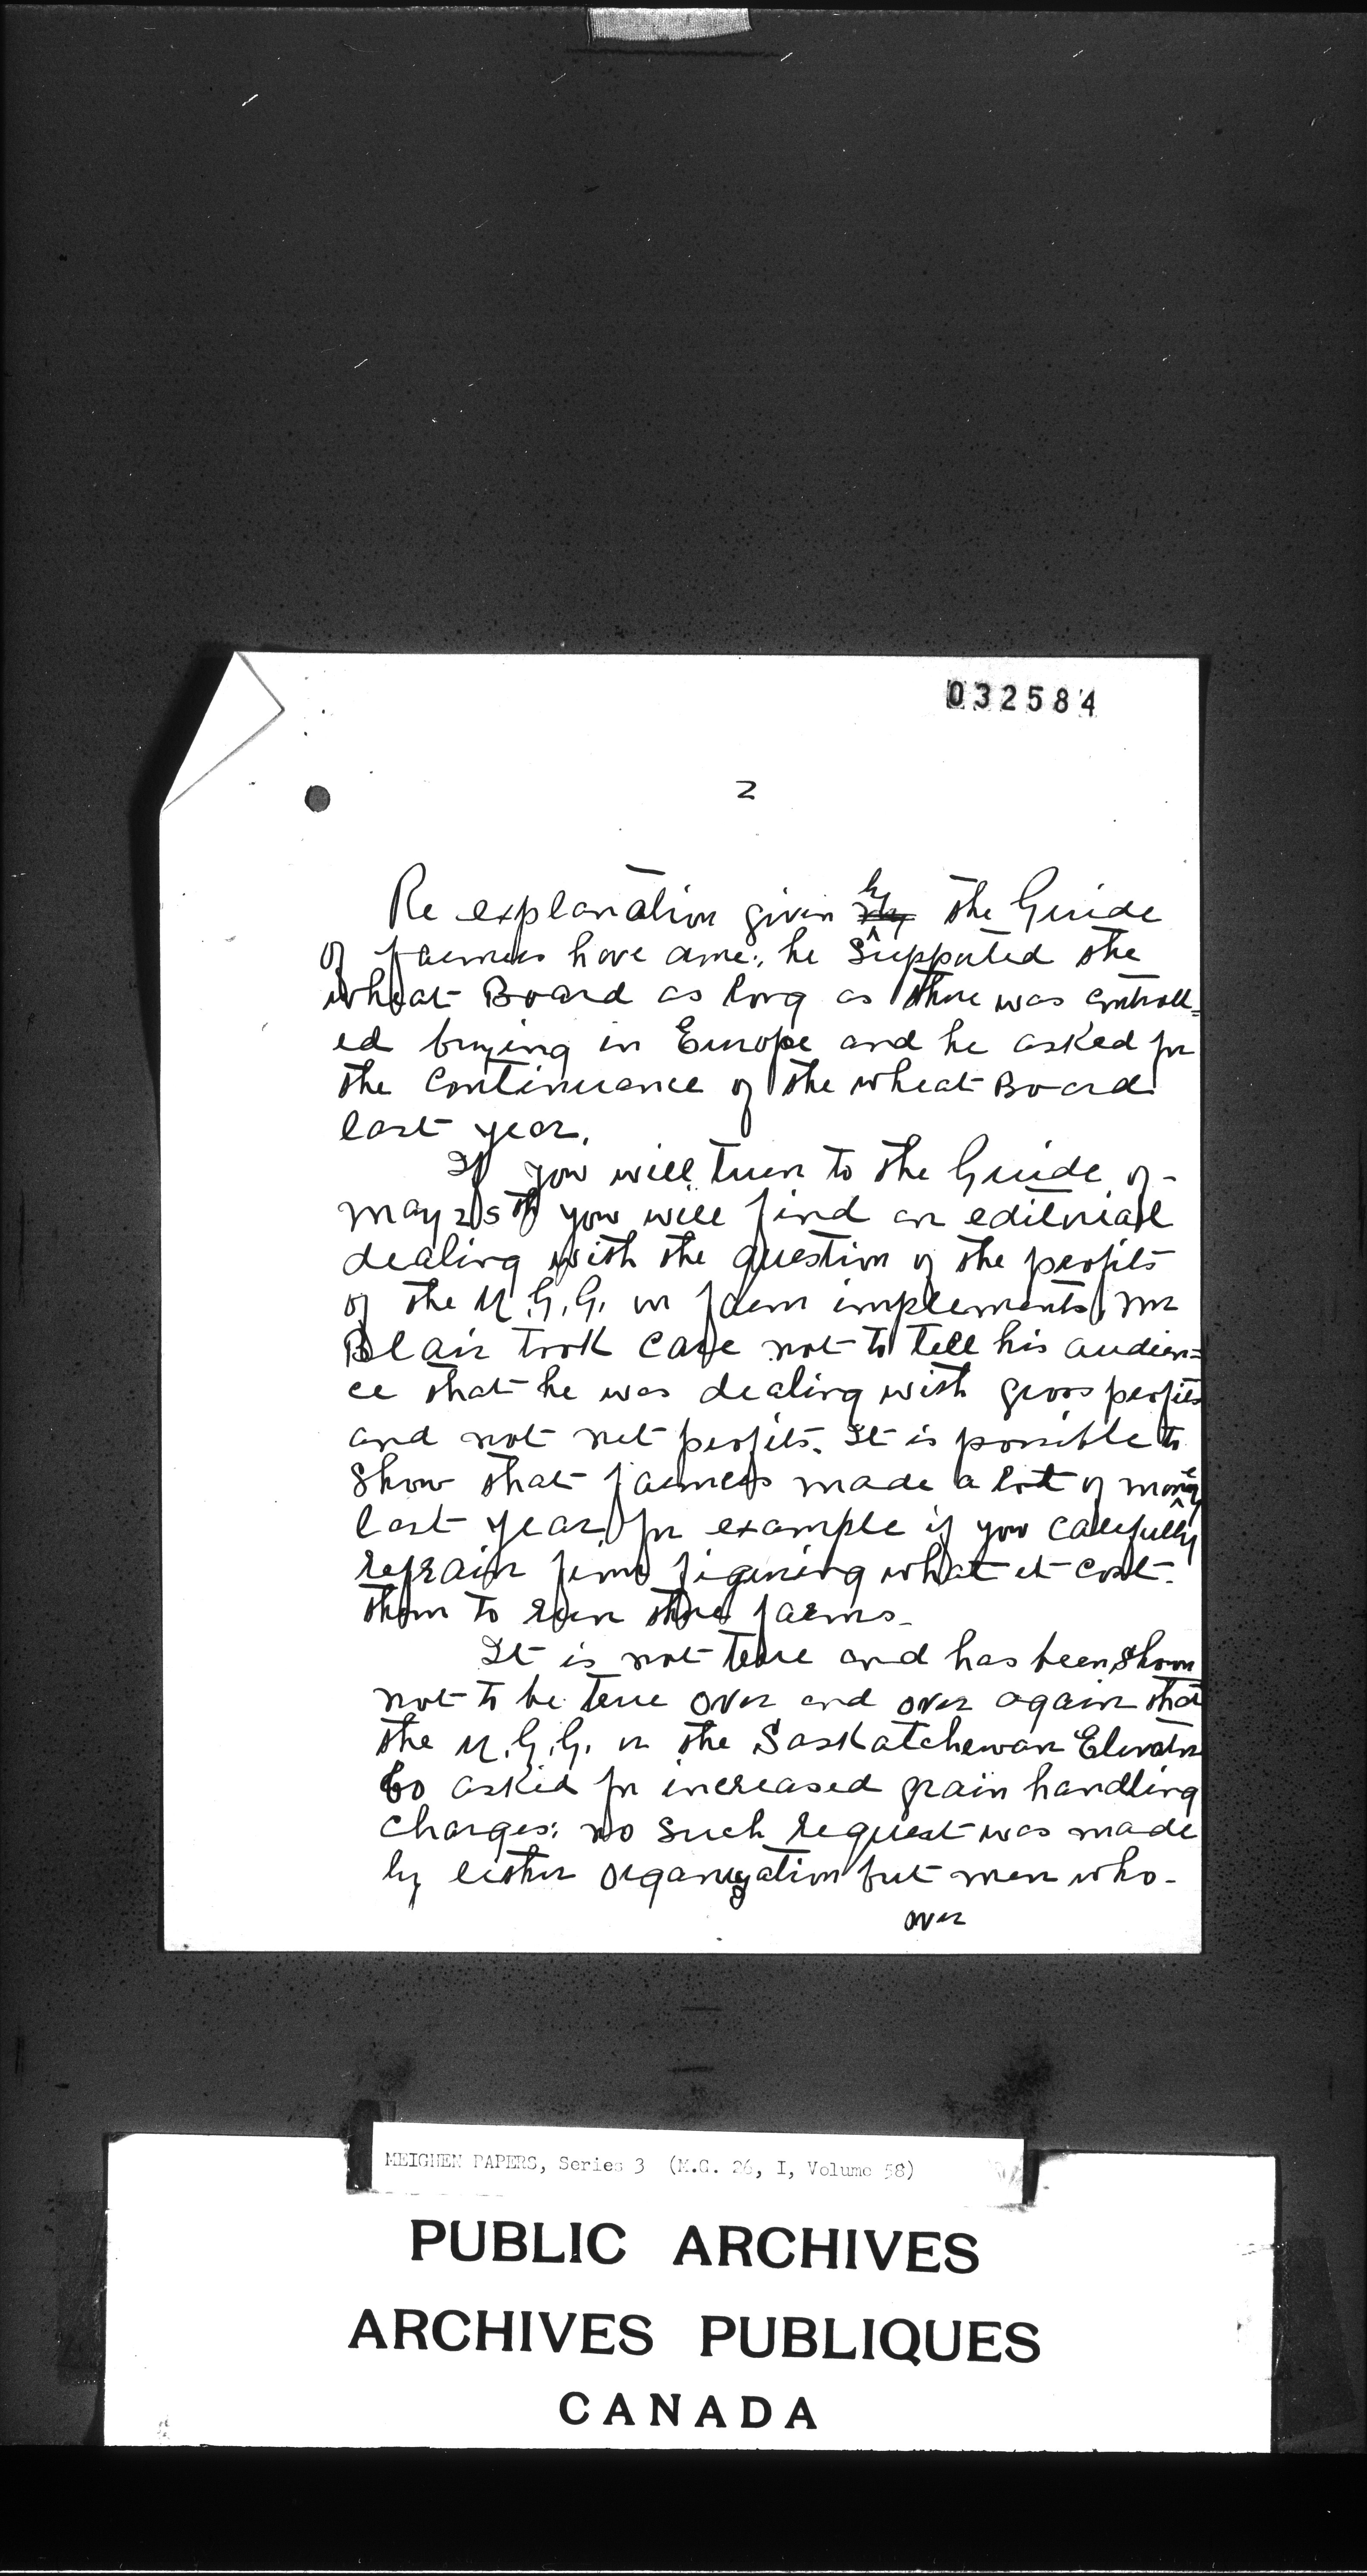 032584
2
Re explanation given by the Guide
of farmers have ame:, he supported the
wheat Board as long as there was controll=
ed buying in Europe and he asked for
the continuance of the wheat Board
last year.
If you will turn to the Guide of
may 25th you will find an editorial
dealing with the question of the profits
of the U.G.G. in farm implements, mr
Blair took care not to tell his audien=
ce that he was dealing with gross profits
and not net profits. It is possible to
show that farmers made a lot of money
last year for example if you carefully
refrain from figuring what it cost
them to run their farms.
It is not true and has been shown
not to be true over and over again that
the U.G.G. or the Saskatchewan Elevator
Co asked for increased grain handling
charges: no such request was made
by either organization but men who-
over
MEIGHEN PAPERS, Series 3 (M.G. 26, I, Volume 58)
PUBLIC ARCHIVES
ARCHIVES PUBLIQUES
CANADA